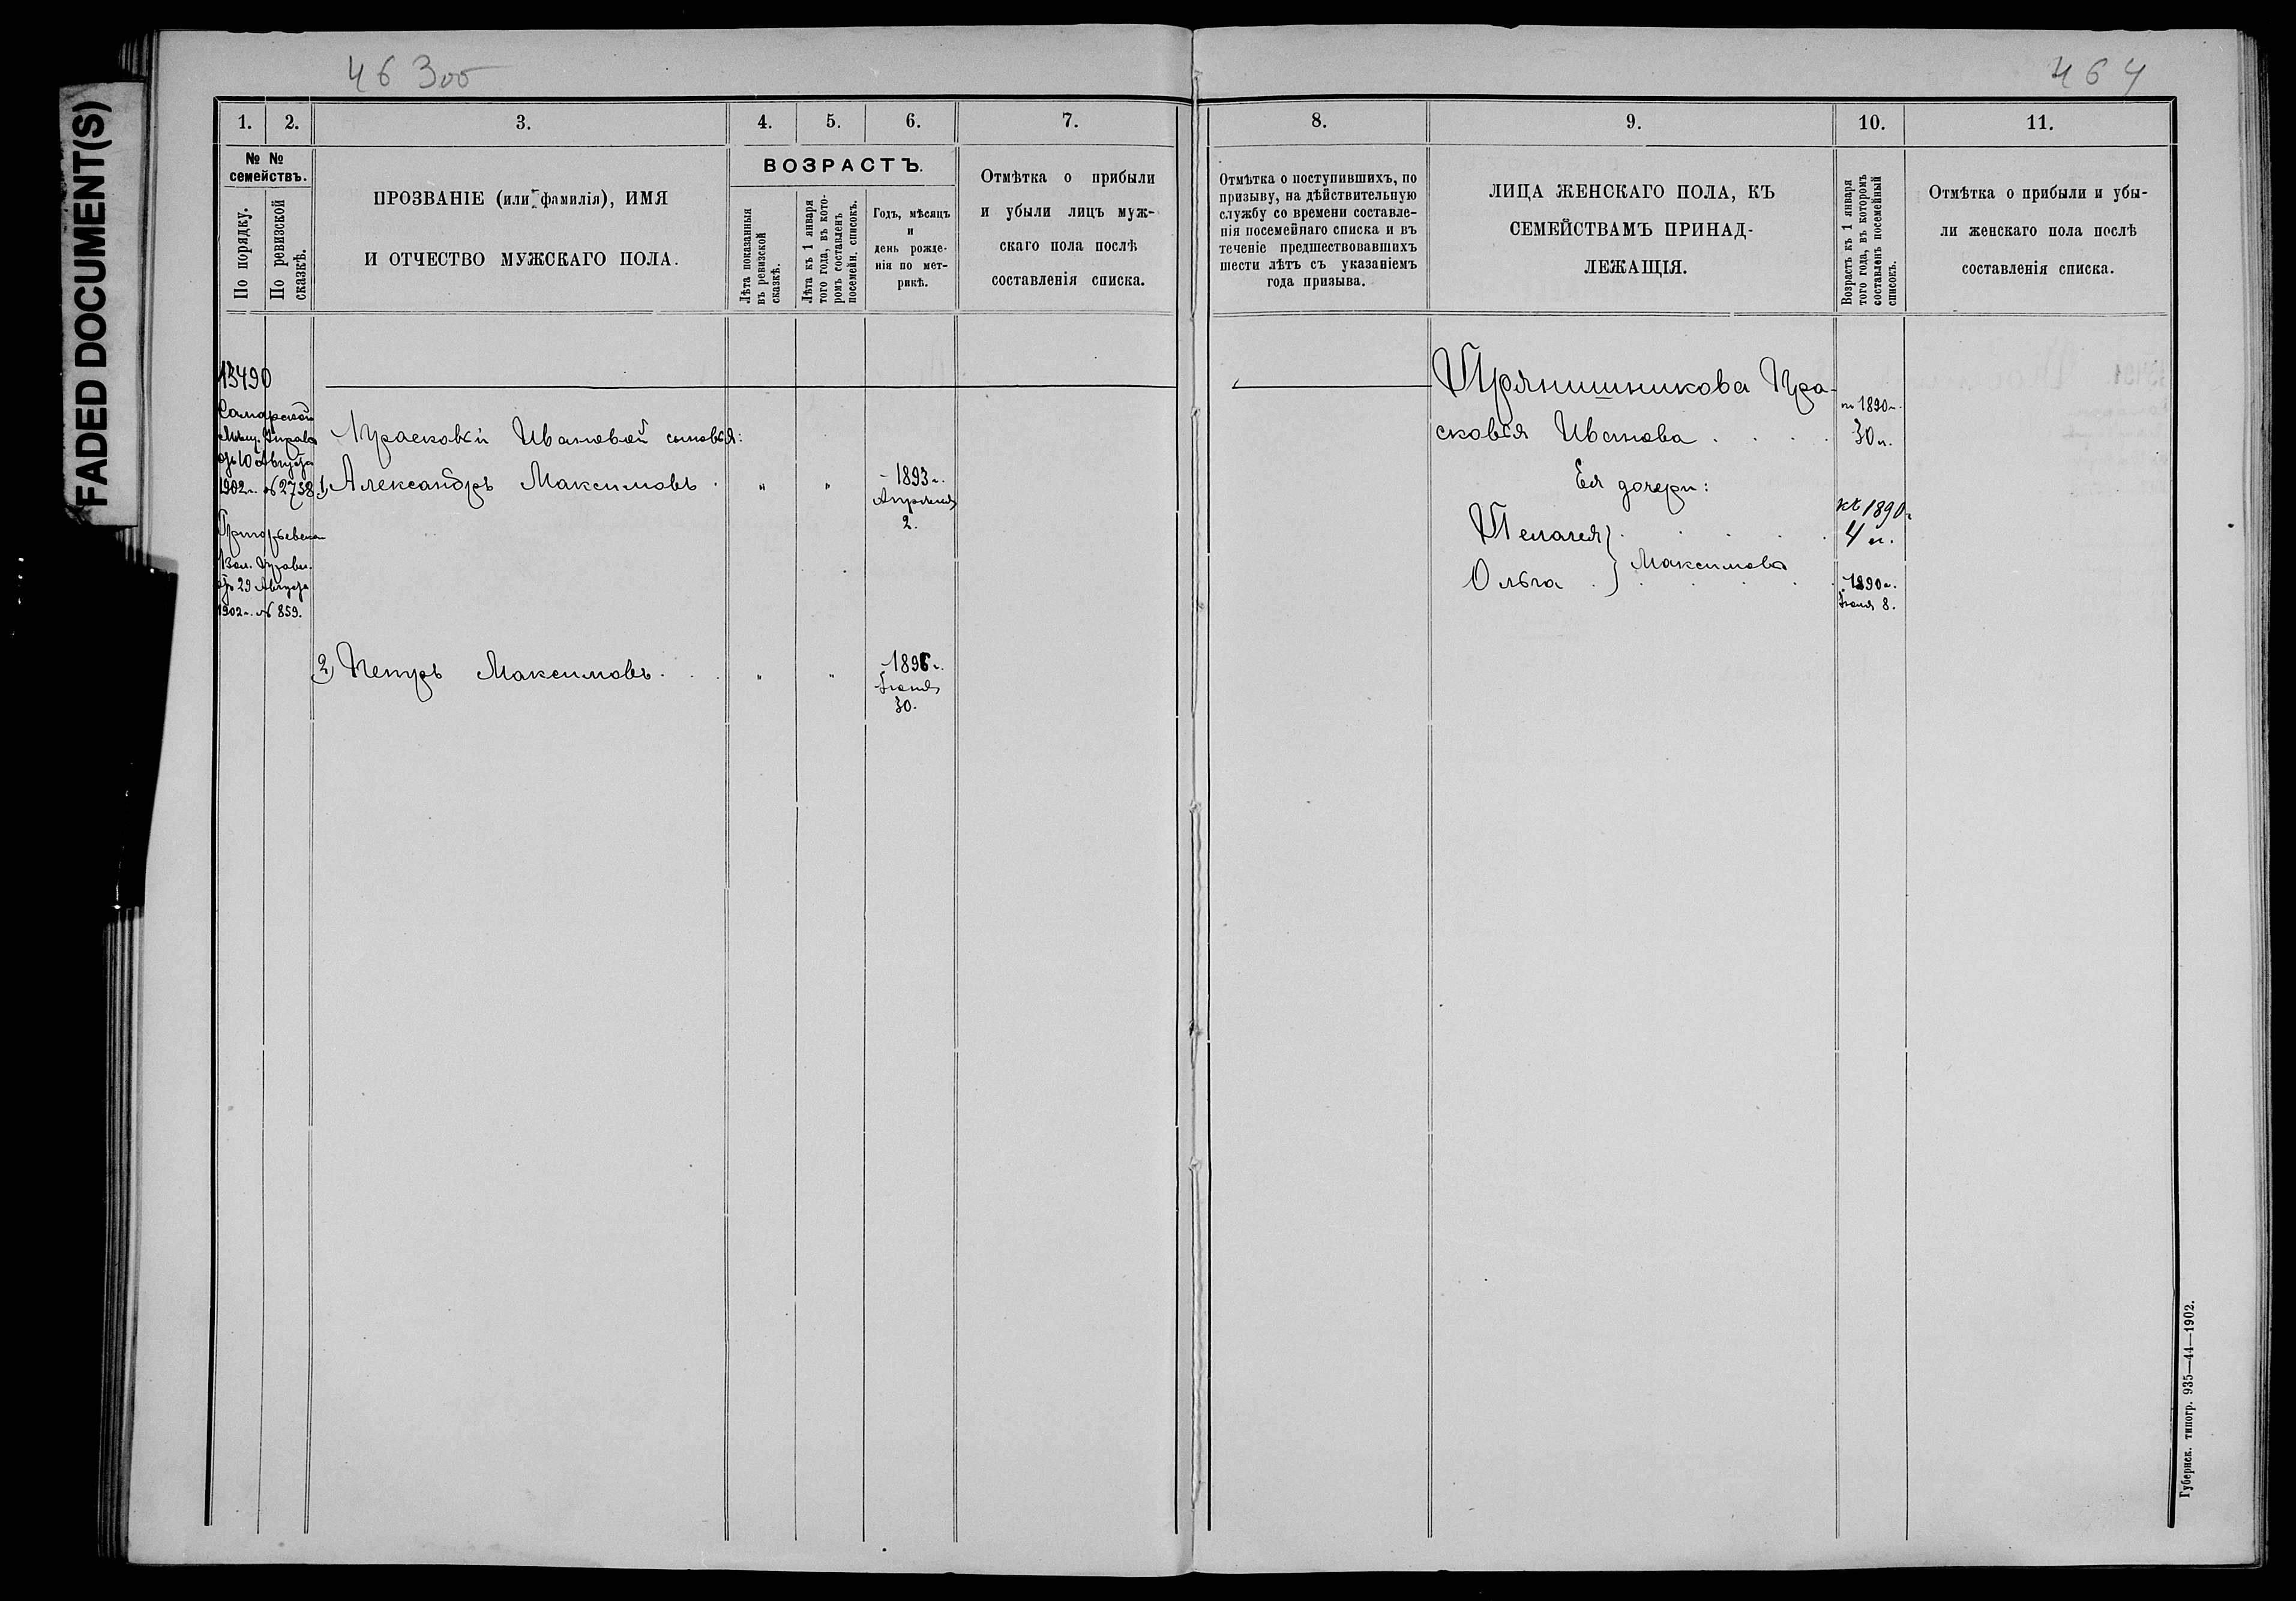 46 3об
464
FADED DOCUMENT(S)
1. 2. 3. 4. 5. 6. 7.
№ №
семействъ.
По порядку.
По ревизской
сказкѣ.
ПРОЗВАНІЕ (или фамилія), ИМЯ
И ОТЧЕСТВО МУЖСКАГО ПОЛА.
ВОЗРАСТЪ.
Лѣта показанныя
въ ревизской
сказкѣ.
Лѣта къ 1 января
того года, въ кото-
ромъ составленъ
посемейн. списокъ.
Годъ, мѣсяцъ
и
день рожде-
нія по мет-
рикѣ.
Отмѣтка о прибыли
и убыли лицъ муж-
скаго пола послѣ
составленія списка.
13490
Самарской
Мѣщ. Управы
отъ 10 Августа
1902 г. № 2738
Григорьевскаго
Вол. Правл.
отъ 29 Августа
1902 г. № 859.
Прасковьи Ивановой сыновья:
1, Александръ Максимовъ . „ „ 1893 г.
Апрѣля
2.
2, Петръ Максимовъ . . . „ „ 1896 г.
Іюня
30.
8. 9. 10. 11.
Отмѣтка о поступившихъ, по
призыву, на дѣйствительную
службу со времени составле-
нія посемейнаго списка и въ
теченіе предшествовавшихъ
шести лѣтъ съ указаніемъ
года призыва.
ЛИЦА ЖЕНСКАГО ПОЛА, КЪ
СЕМЕЙСТВАМЪ ПРИНАД-
ЛЕЖАЩІЯ.
Возрастъ къ 1 января
того года, въ которомъ
составленъ посемейный
списокъ.
Отмѣтка о прибыли и убы-
ли женскаго пола послѣ
составленія списка.
Прянишникова Пра-
сковья Иванова . . . .
1890 г.
30 л.
Ея дочери:
Пелагея . . . .
къ 1890 г.
4 л.
Максимовы
Ольга . . . . .
1890 г.
Іюля 8.
Губернск. типогр. 935—44—1902.